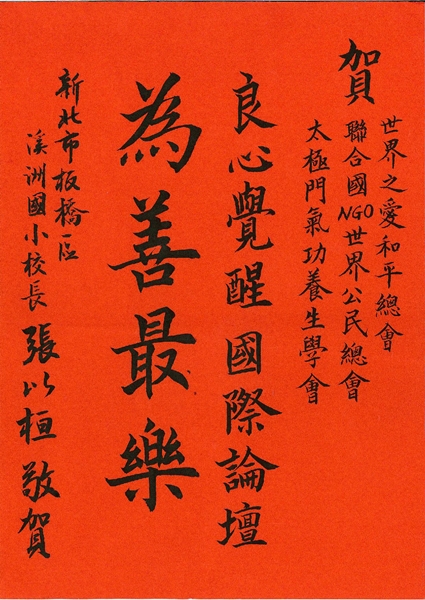 賀
世界之愛和平總會
聯合國NGO世界公民總會
太極門氣功養生學會
良心覺醒國際論壇
為善最樂
新北市板橋區
溪洲國小校長 張以桓 敬賀